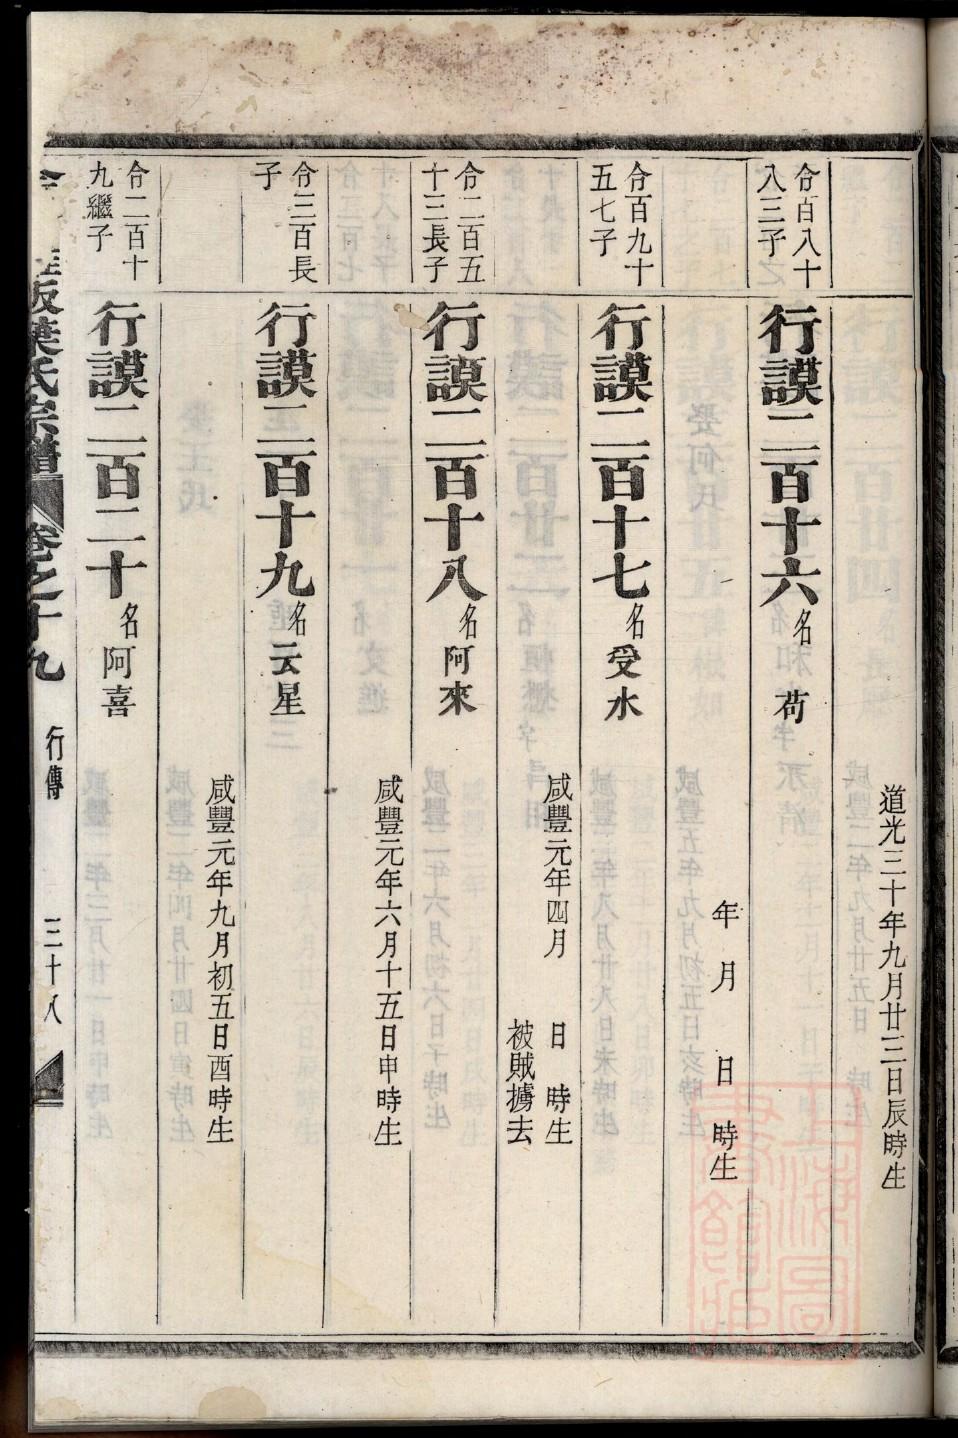 道光三十年九月廿三日辰時生
合百八十
八三子
行謨二百十六名苟
年 月 日 時生
合百九十
五七子
行謨二百十七名受水
咸豐元年四月 日 時生
被賊擄去
合二百五
十三長子
行謨二百十八名阿來
咸豐元年六月十五日申時生
合三百長
子
行謨二百十九名云星
咸豐元年九月初五日酉時生
合二百十
九繼子
行謨二百二十名阿喜
葉氏宗譜 卷之十九 行傳 三十八
上海圖書館藏